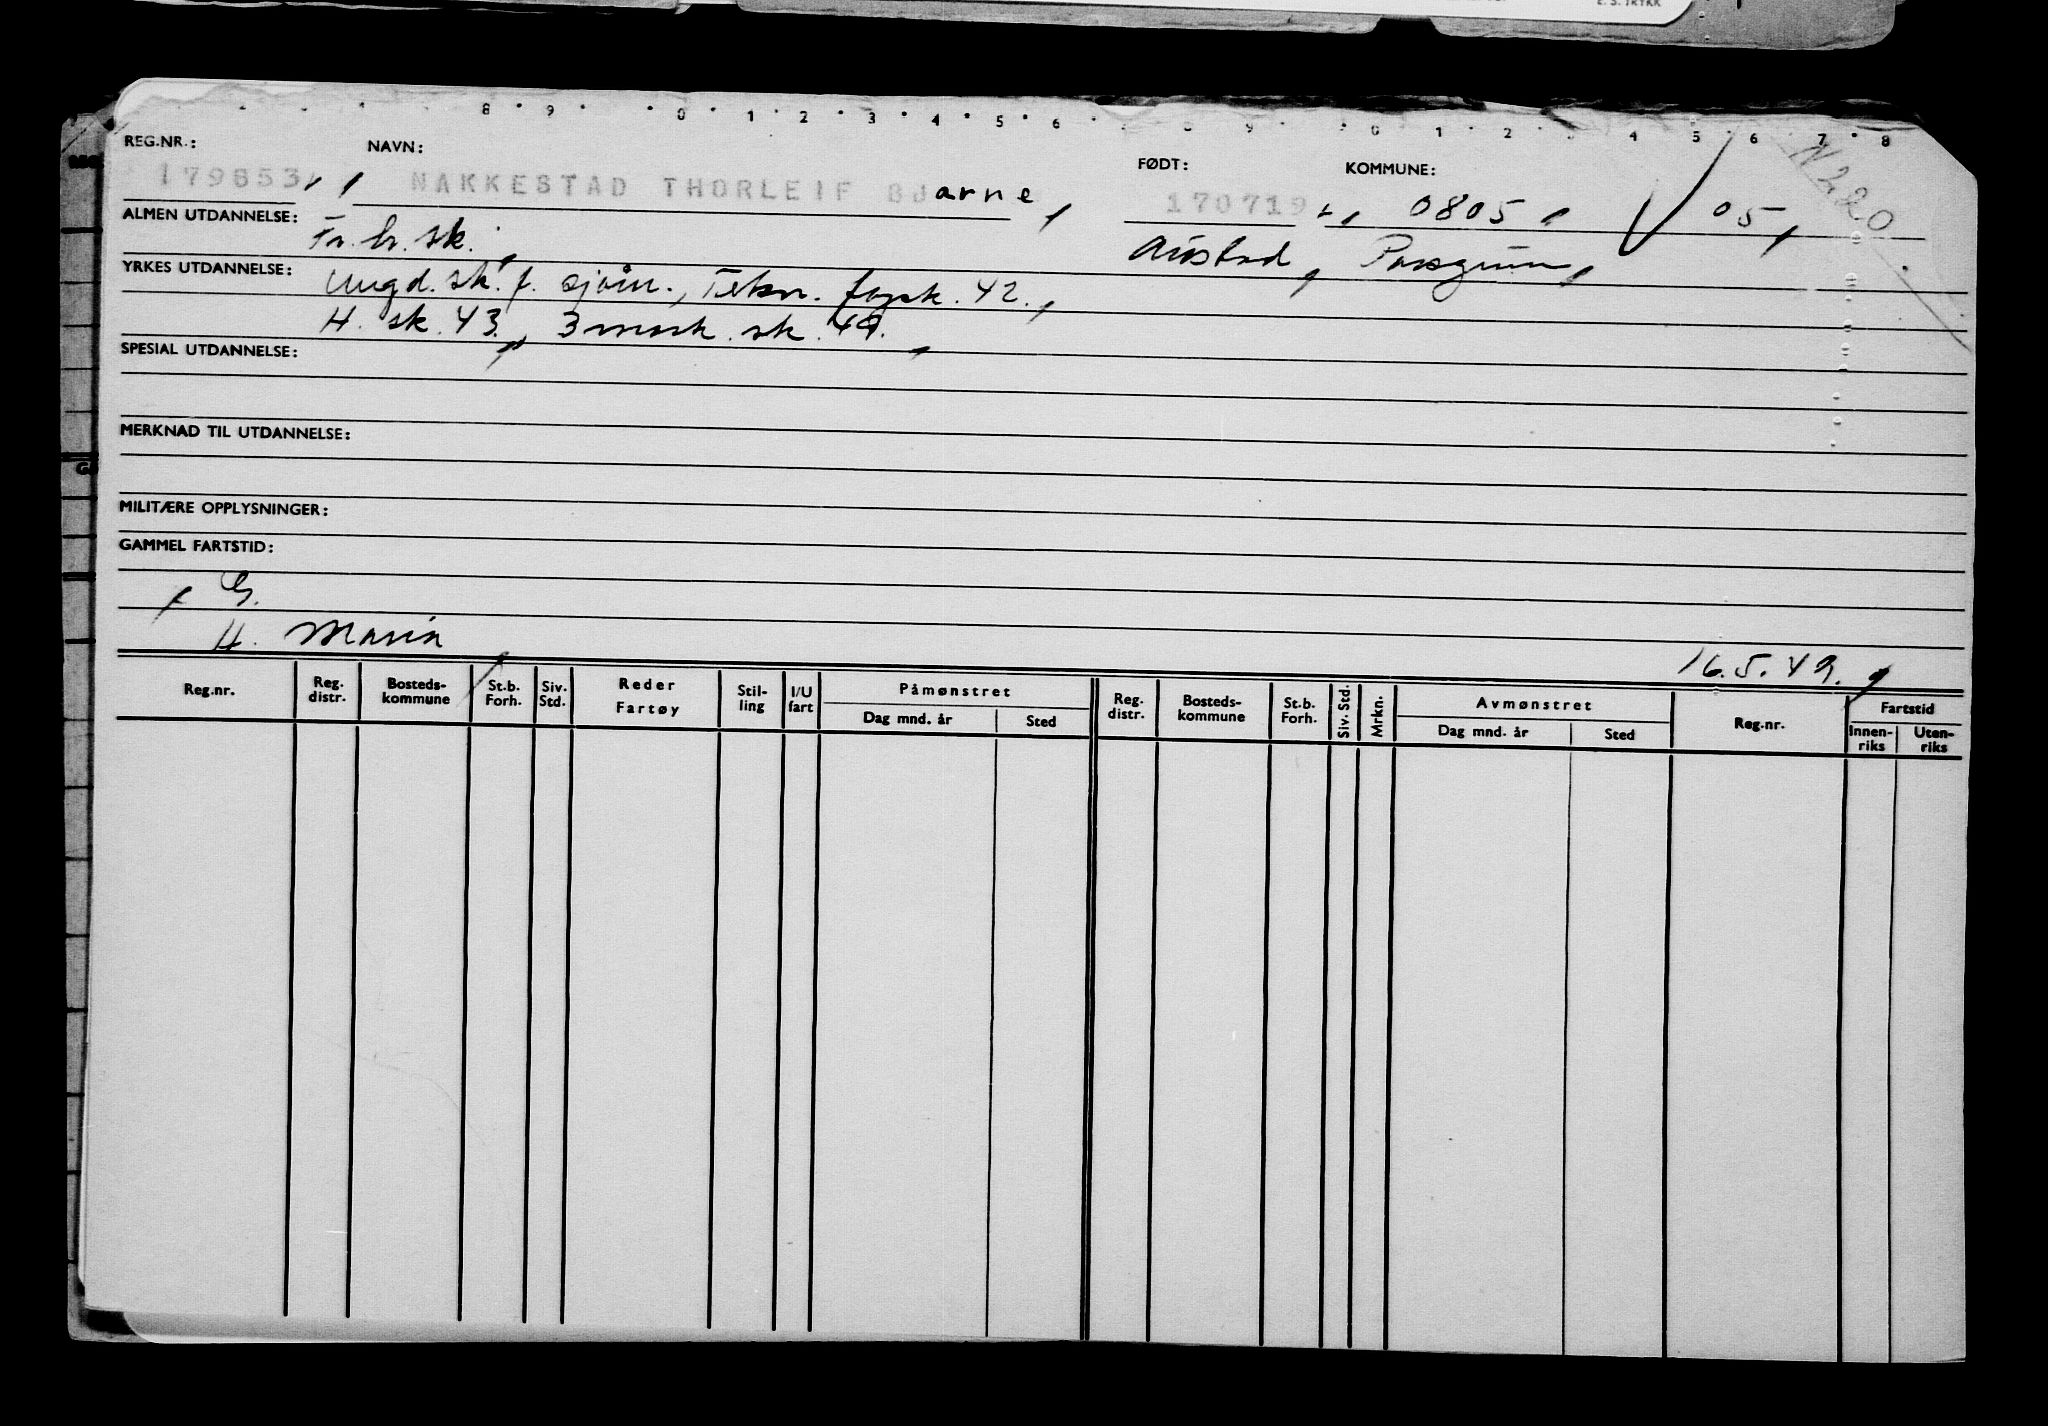 E. S. TRYKK
8 9 0 1 2 3 4 5 6 8 9 0 1 2 4 5 6 7 8
REG.NR.: NAVN: FØDT: KOMMUNE: N 220
179853 NAKKESTAD THORLEIF BJarne, 170719 0805 05,
ALMEN UTDANNELSE: Fr. h. sk. Austad, Porsgrunn,
YRKES UTDANNELSE: Ungd. sk. f. sjøm., Tekn. fagsk. 42.,
H. sk. 43., 3 mask. sk. 49.
SPESIAL UTDANNELSE:
MERKNAD TIL UTDANNELSE:
MILITÆRE OPPLYSNINGER:
GAMMEL FARTSTID:
G.
H. Maria 16.5.49.
Reg.nr. Reg. distr. Bosteds-kommune St.b. Forh. Siv. Std. Reder Fartøy Stil-ling I/U fart Påmønstret Dag mnd. år Sted Reg. distr. Bosteds-kommune St.b. Forh. Siv. Std. Mrkn. Avmønstret Dag mnd. år Sted Reg.nr. Fartstid Innen-riks Uten-riks